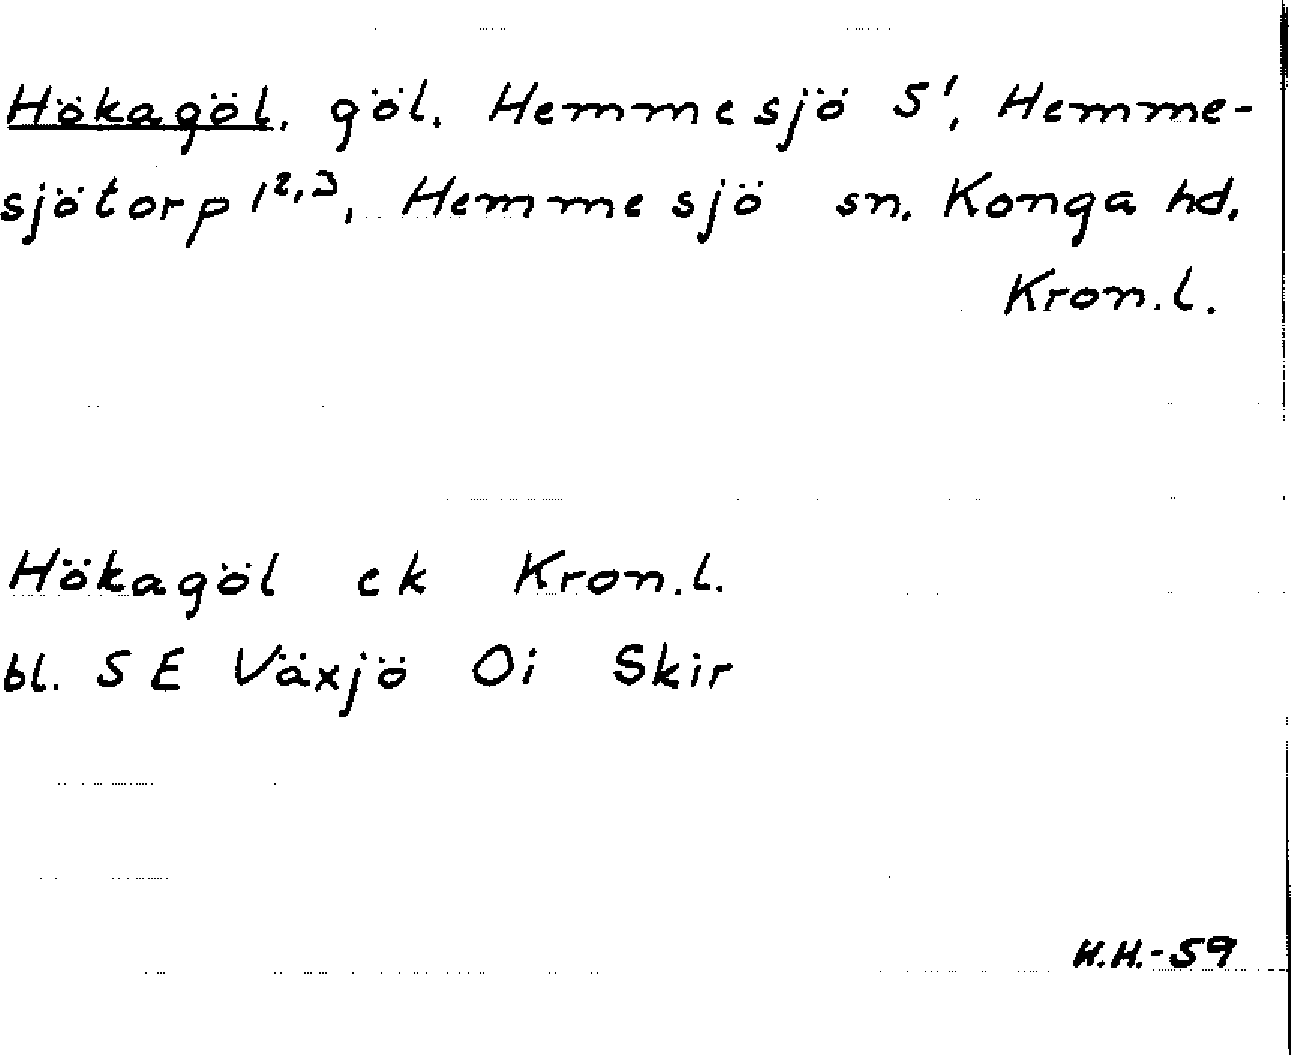 Hökagöl, göl, Hemmesjö 5¹, Hemme-
sjötorp 1²,³, Hemmesjö sn. Konga hd.
Kron.l.
Hökagöl ek Kron.l.
bl. SE Växjö Oi Skir
H.H.-59